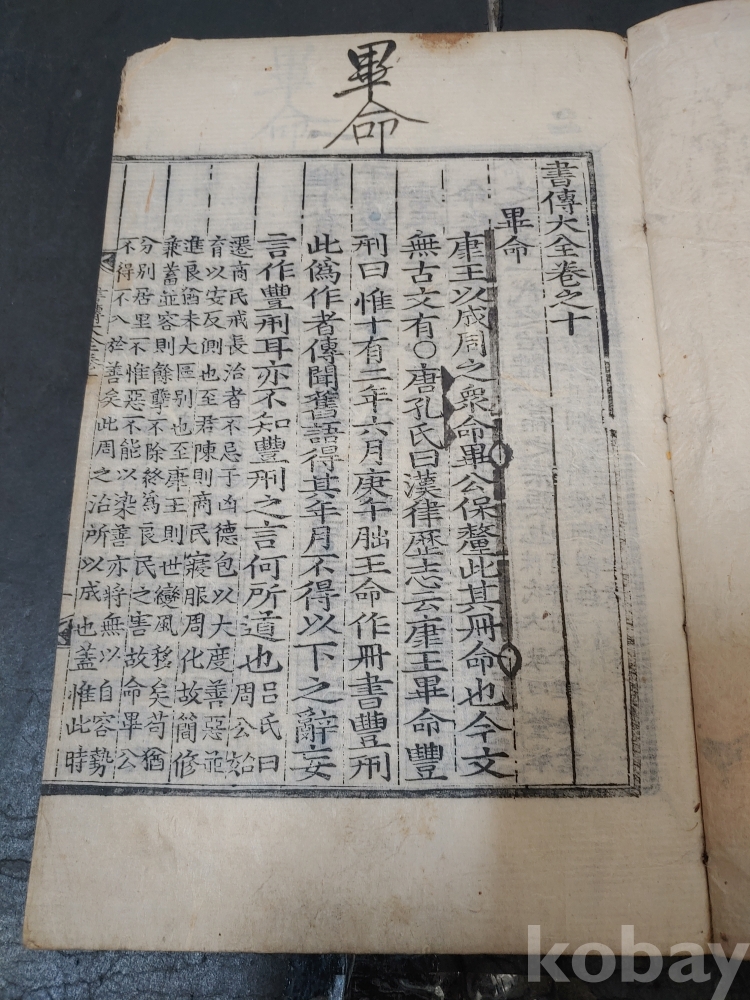 畢命
書傳大全卷之十
畢命
康王以成周之衆命畢公保釐此其冊命也今文
無古文有○唐孔氏曰漢律歷志云康王畢命豐
刑曰惟十有二年六月庚午朏王命作冊書豐刑
此僞作者傳聞舊語得其年月不得以下之辭妄
言作豐刑耳亦不知豐刑之言何所道也呂氏曰周公始
遷商民戒長治者不忌于凶德包以大度善惡並
育以安反側也至君陳則商民寖服周化故簡修
進良猶未大區別也至康王則世變風移矣苟猶
兼蓄並容則餘孽不除終為良民之害故命畢公
分別居里不惟惡不能以染善亦將無以自容勢
不得不入於善矣此周之治所以成也蓋惟此時
kobay